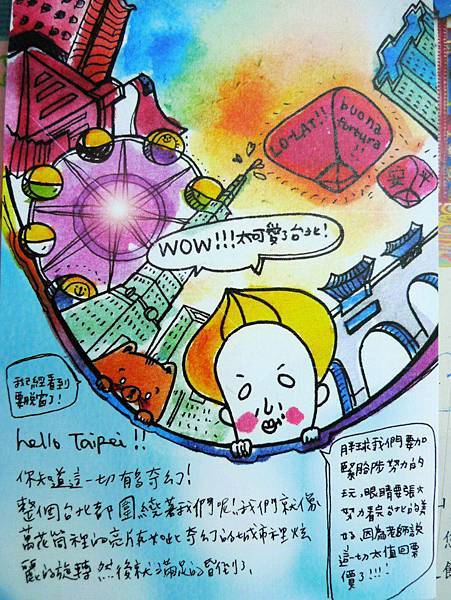 LO-LAT!!
buona
fortura
!!
安平
WOW!!!太可愛了台北!
我已經看到
要脫窗了!
hello Taipei !!
你知道這一切有多奇幻!
整個台北都圍繞著我們呢!我們就像
萬花筒裡的亮片在如此奇幻的城市裡炫
麗的旋轉 然後就滿足的昏倒了.
胖球我們要加
緊腳步努力的
玩,眼睛要張大
努力看見台北的美
好,因為老師說
這一切太值回票
價了!!!!